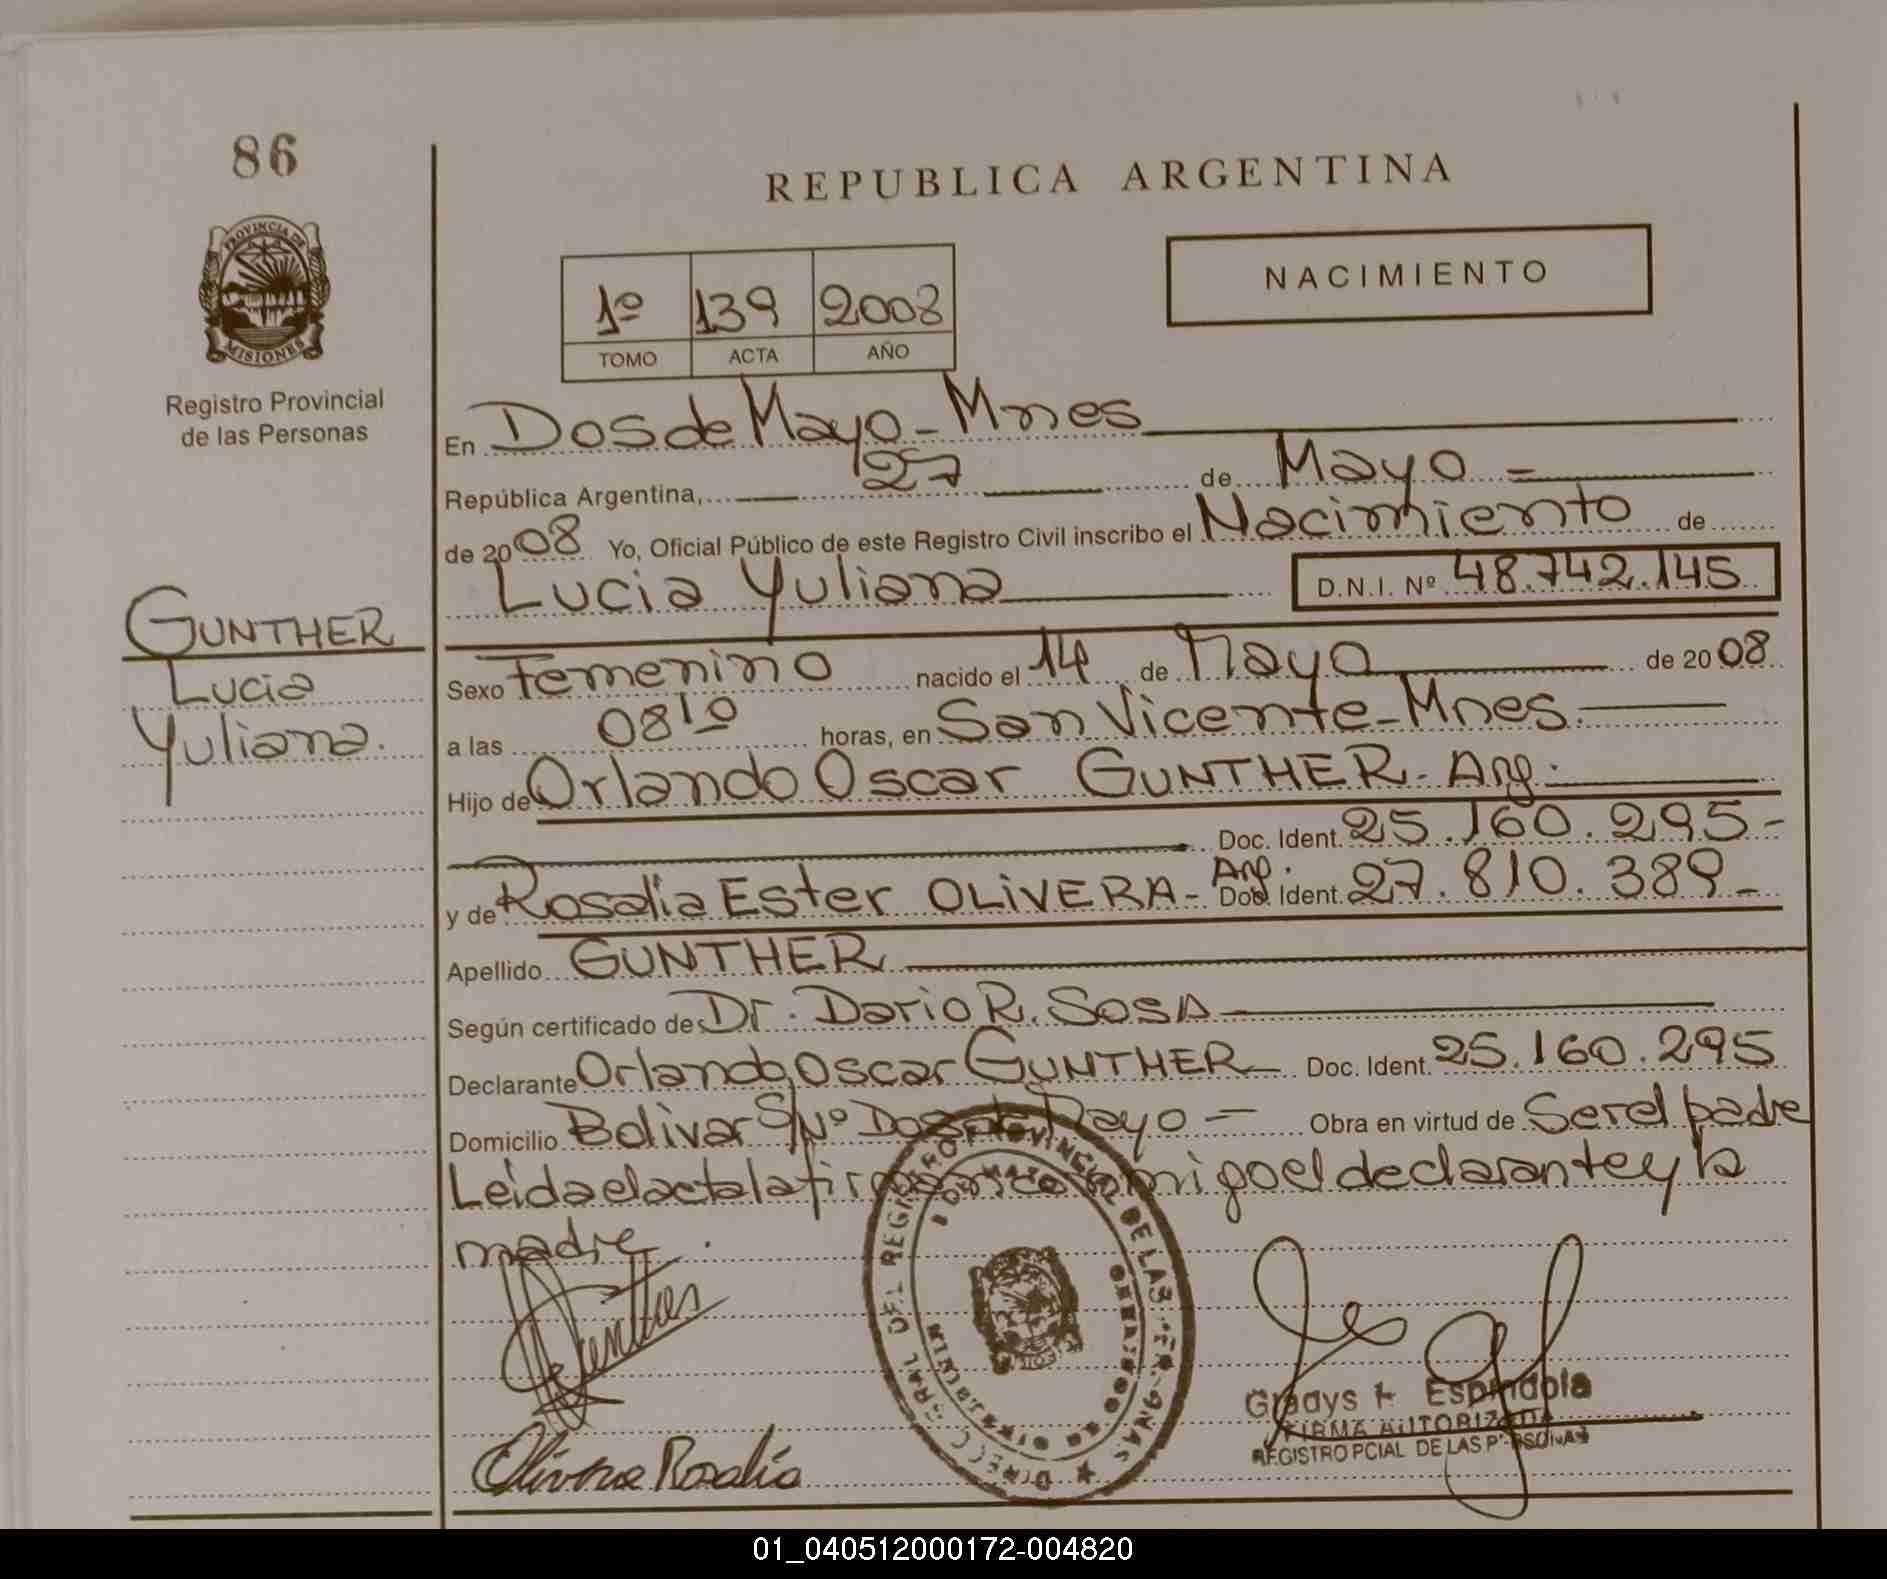 86
REPUBLICA ARGENTINA
PROVINCIA DE
MISIONES
Registro Provincial
de las Personas
NACIMIENTO
1º 139 2008
TOMO ACTA AÑO
En Dos de Mayo - Mnes
República Argentina, 27 de Mayo =
de 2008 Yo, Oficial Público de este Registro Civil inscribo el Nacimiento de
Lucia Yuliana D.N.I. Nº 48.742.145
GUNTHER
Lucia
Yuliana.
Sexo Femenino nacido el 14 de Mayo de 2008
a las 08¹⁰ horas, en San Vicente - Mnes.
Hijo de Orlando Oscar GUNTHER - Arg.
Doc. Ident. 25.160.295 -
y de Rosalia Ester OLIVERA - Arg. Doc. Ident. 27.810.389 -
Apellido GUNTHER
Según certificado de: Dr. Dario R. SOSA
Declarante Orlando Oscar GUNTHER Doc. Ident. 25.160.295
Domicilio Bolivar S/Nº Dos de Mayo - Obra en virtud de Ser el padre
Leida el acta la firman conmigo el declarante y la
madre.
Gunther
DEL REGISTRO PROVINCIAL DE LAS PERSONAS
Gladys Espindola
FIRMA AUTORIZADA
REGISTRO PCIAL DE LAS PERSONAS
Olivera Rosalía
01_040512000172-004820